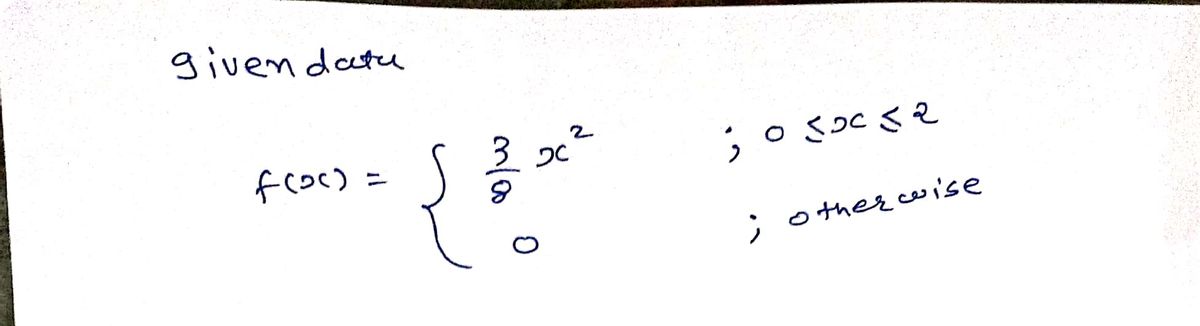 given data
f(x) = { 3/8 x² ; 0 ≤ x ≤ 2
0 ; otherwise